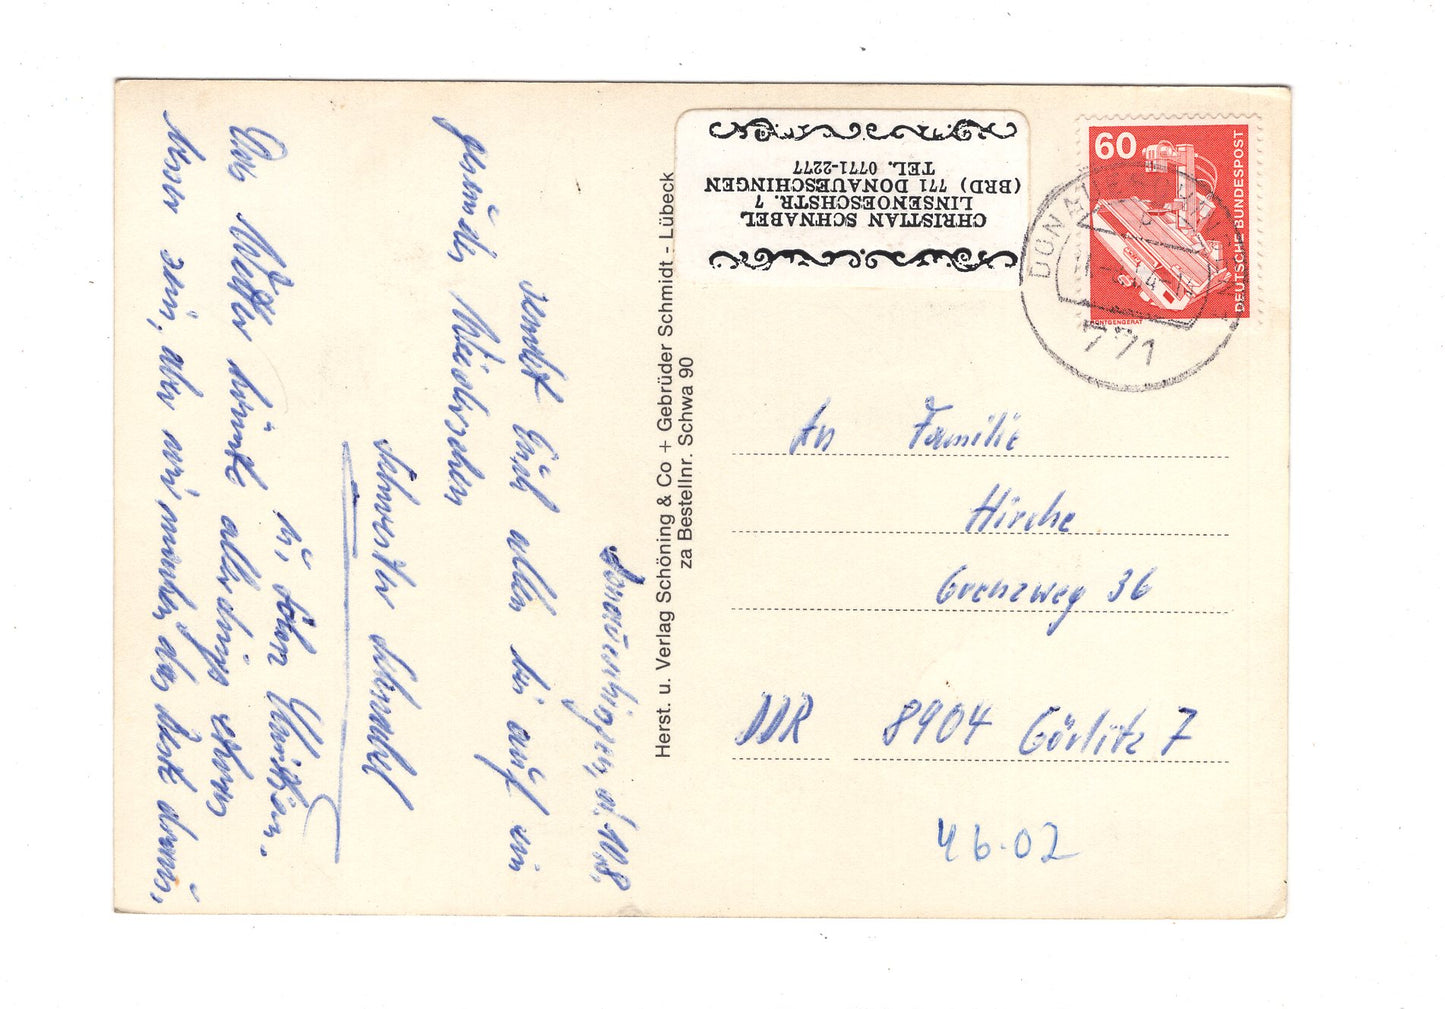 Donaueschingen, d. 10.8.
sendet Euch allen bis auf ein
gesundes Wiedersehen
Schwester Schnabel
u. Sohn Christian.
Das Wetter könnte allerdings etwas
besser sein, aber wir machen das beste draus.
Herst. u. Verlag Schöning & Co + Gebrüder Schmidt - Lübeck
za Bestellnr. Schwa 90
CHRISTIAN SCHNABEL
LINSENOESCHSTR. 7
(BRD) 771 DONAUESCHINGEN
TEL. 0771-2277
60
DEUTSCHE BUNDESPOST
RÖNTGENGERÄT
771
An Familie
Hirche
Grenzweg 36
DDR 8904 Görlitz 7
46.02